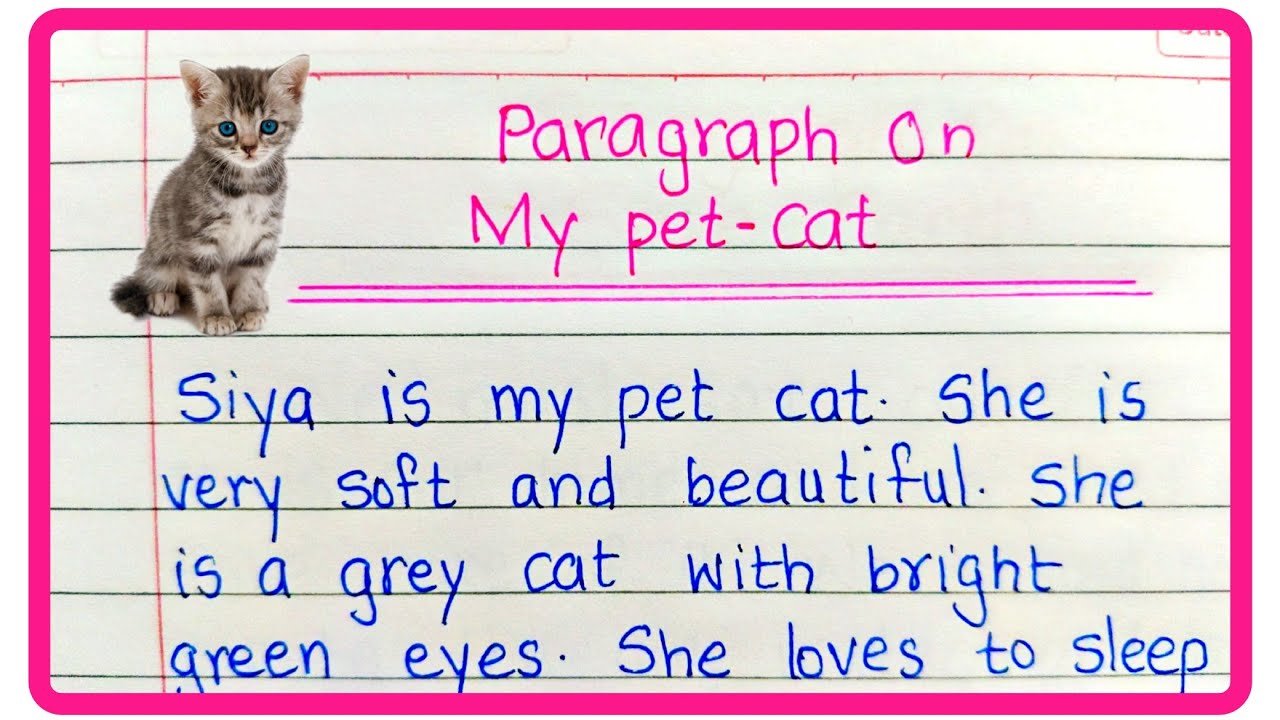 Paragraph On
My pet-cat
Siya is my pet cat. She is
very soft and beautiful. She
is a grey cat with bright
green eyes. She loves to sleep